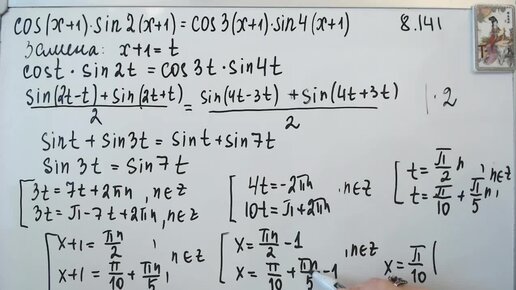 cos(x+1)·sin2(x+1)=cos3(x+1)·sin4(x+1) 8.141
Замена: x+1=t
cost·sin2t=cos3t·sin4t
(sin(2t-t)+sin(2t+t))/2 = (sin(4t-3t)+sin(4t+3t))/2 |·2
sint+sin3t=sint+sin7t
sin3t=sin7t
[3t=7t+2πn, n∈Z
3t=π-7t+2πn, n∈Z
[4t=-2πn
10t=π+2πn, n∈Z
[t=π/2 n
t=π/10+π/5 n, n∈Z
[x+1=πn/2,
x+1=π/10+πn/5, n∈Z
[x=πn/2-1
x=π/10+πn/5-1, n∈Z
x=π/10(